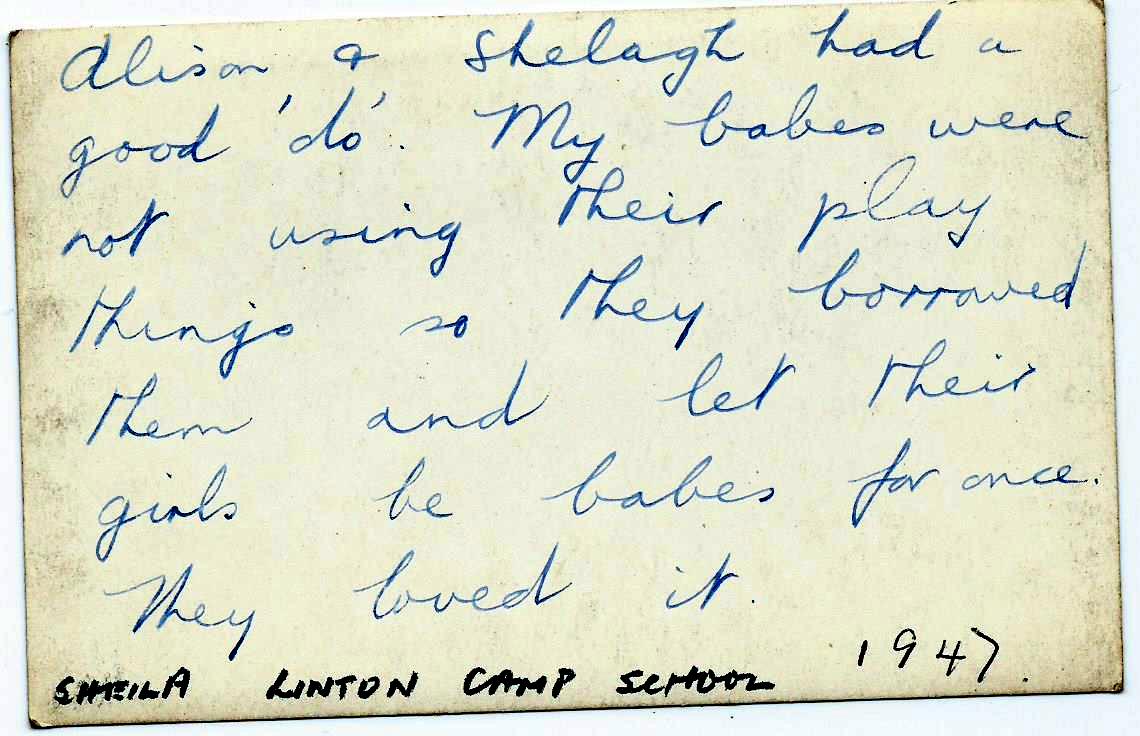 Alison & Shelagh had a
good 'do'. My babes were
not using their play
things so they borrowed
them and let their
girls be babes for once.
They loved it.
1947.
SHEILA LINTON CAMP SCHOOL